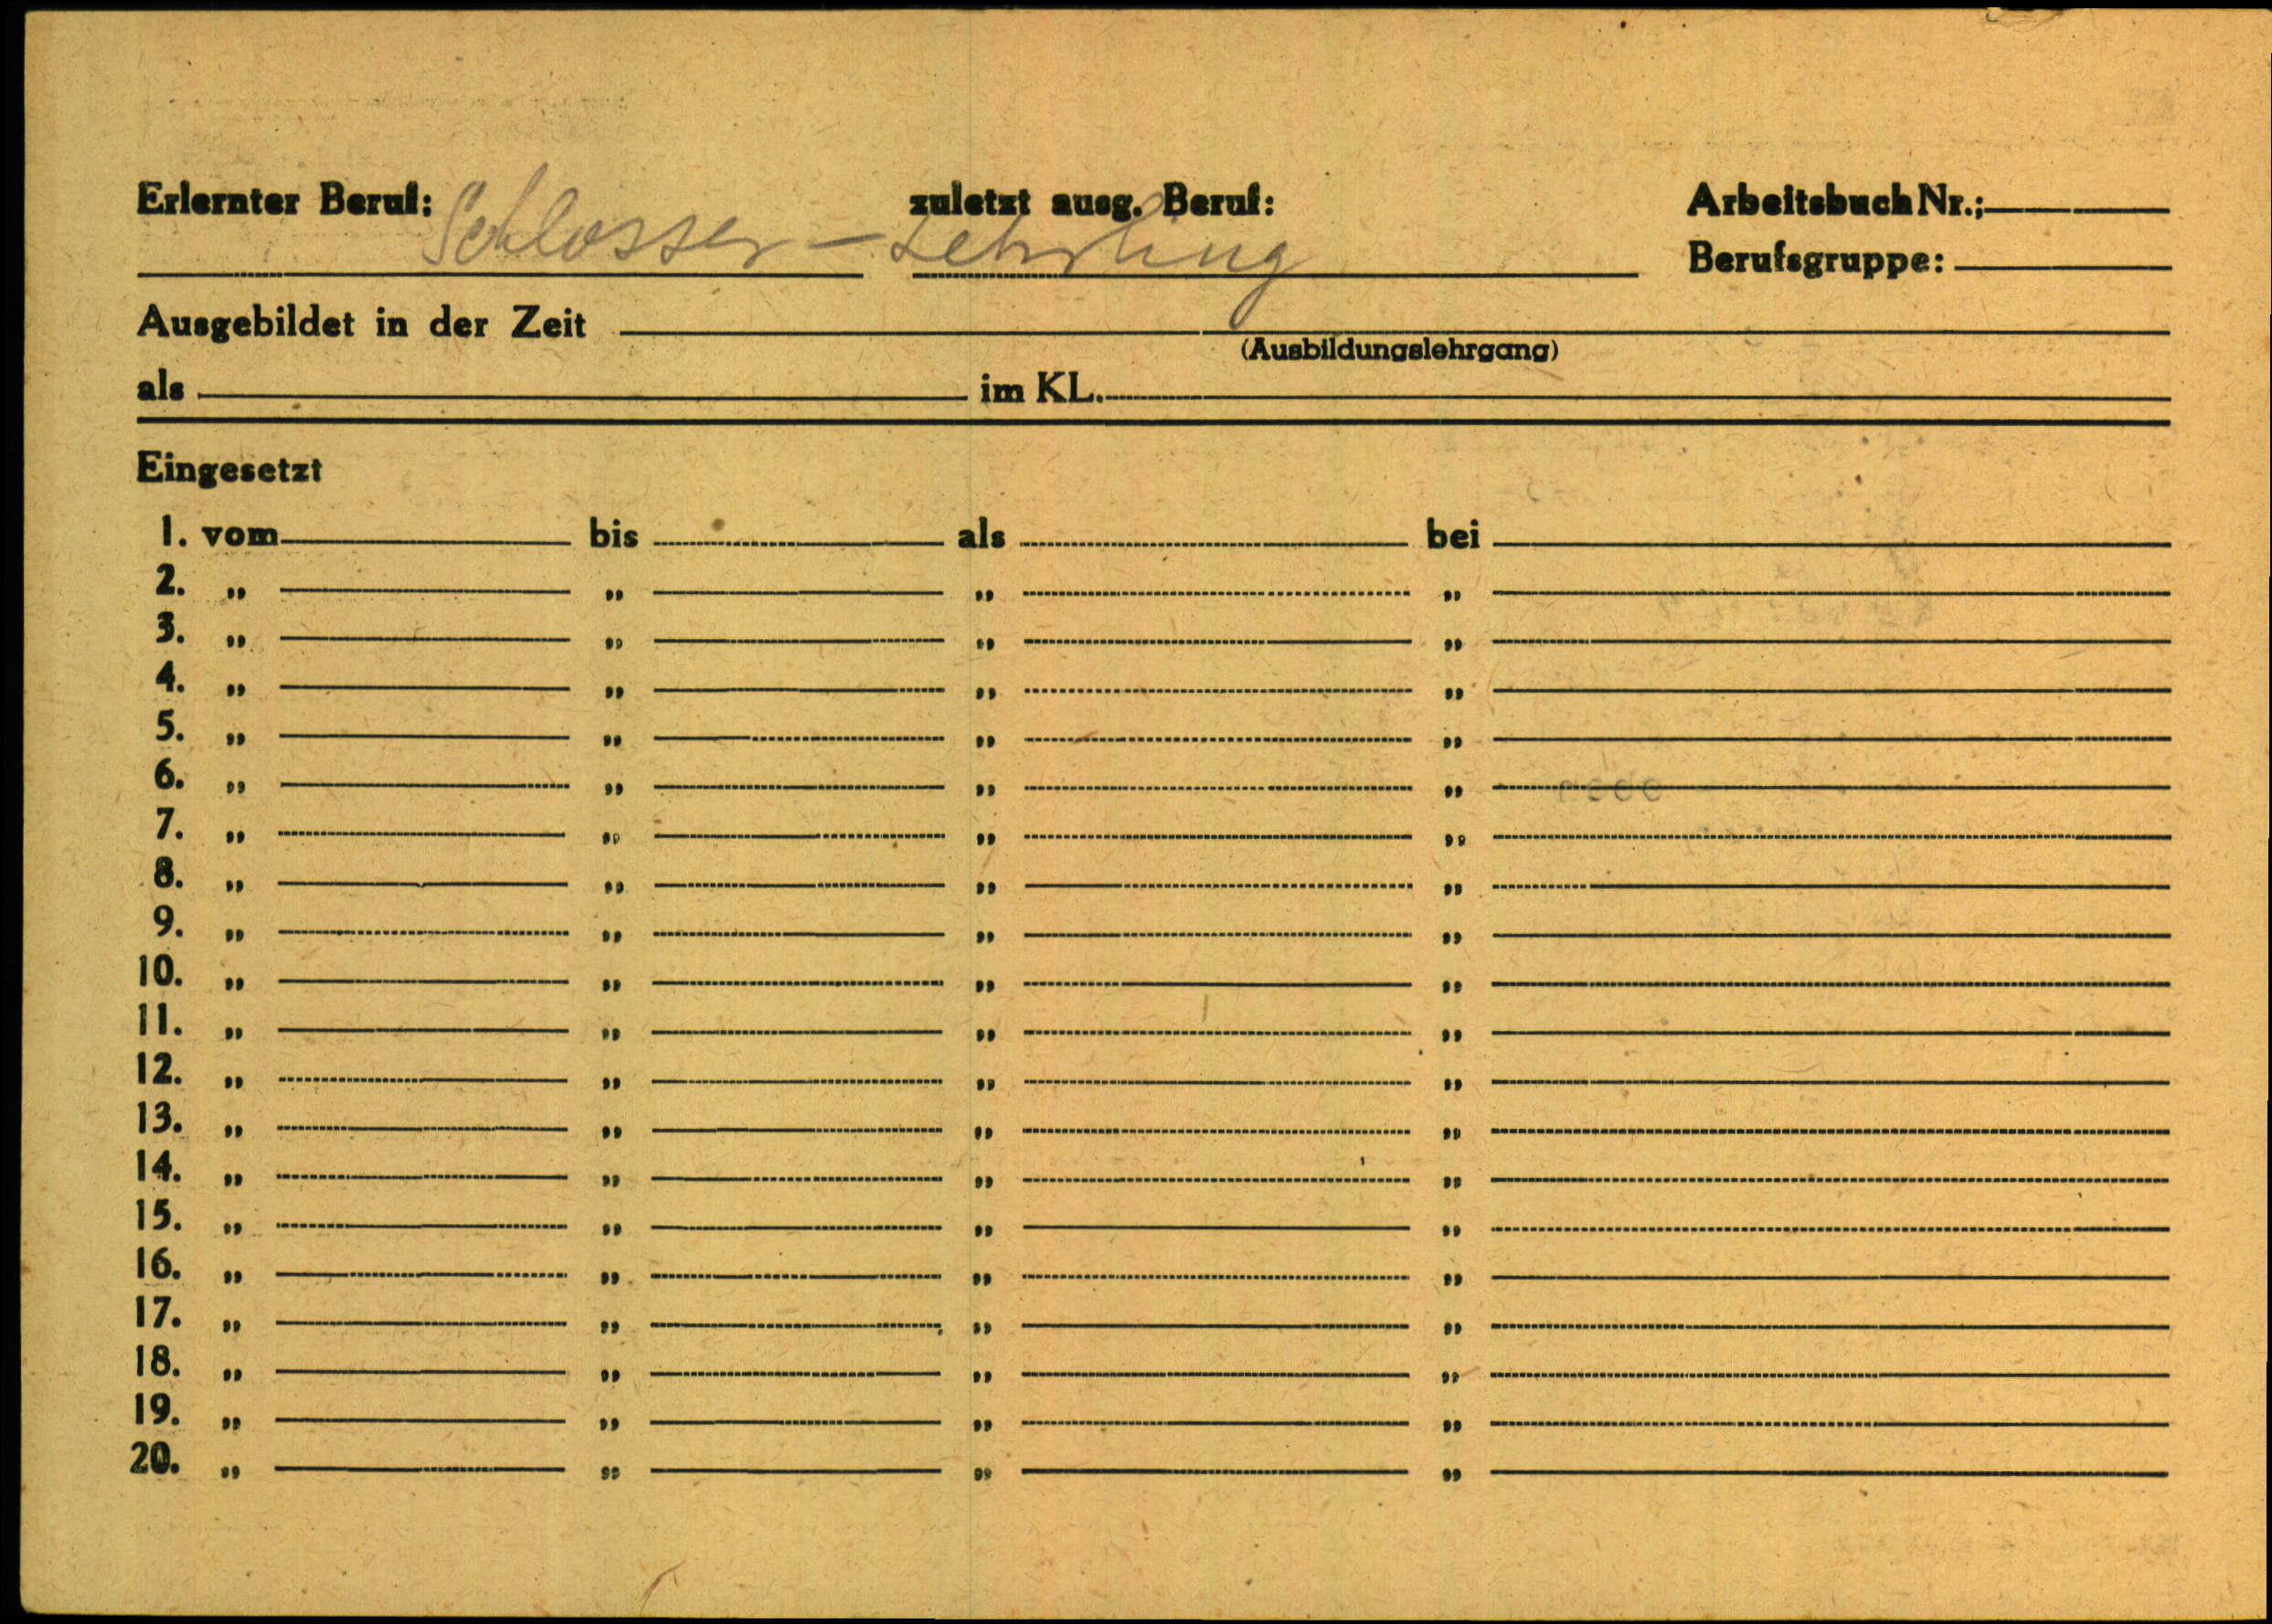 Erlernter Beruf: zuletzt ausg. Beruf: Arbeitsbuch Nr.:
Schlosser - Lehrling
Berufsgruppe:
Ausgebildet in der Zeit
(Ausbildungslehrgang)
als im KL.
Eingesetzt
1. vom bis als bei
2. „ „ „ „
3. „ „ „ „
4. „ „ „ „
5. „ „ „ „
6. „ „ „ „
7. „ „ „ „
8. „ „ „ „
9. „ „ „ „
10. „ „ „ „
11. „ „ „ „
12. „ „ „ „
13. „ „ „ „
14. „ „ „ „
15. „ „ „ „
16. „ „ „ „
17. „ „ „ „
18. „ „ „ „
19. „ „ „ „
20. „ „ „ „